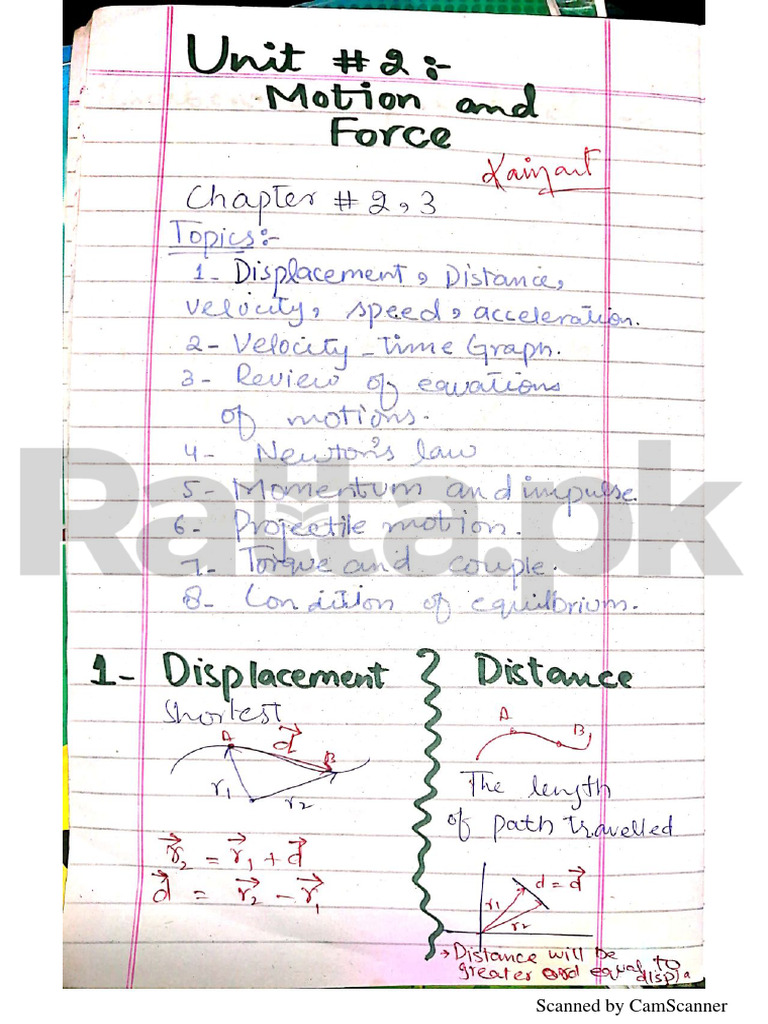 Unit # 2 :-
Motion and
Force
Kainaut
Chapter # 2, 3
Topics:-
1- Displacement, Distance,
velocity, speed, acceleration.
2- Velocity-time Graph.
3- Review of equations
of motions.
4- Newton's law
5- Momentum and impulse
6- Projectile motion.
7- Torque and couple.
8- Condition of equilibrium.
Ratta.pk
1- Displacement
Shortest
A d⃗ B
r1 r2
r⃗2 = r⃗1 + d⃗
d⃗ = r⃗2 - r⃗1
Distance
A B
The length
of path travelled
r1 d = d⃗
r2
→ Distance will be
greater and equal to
displa
Scanned by CamScanner